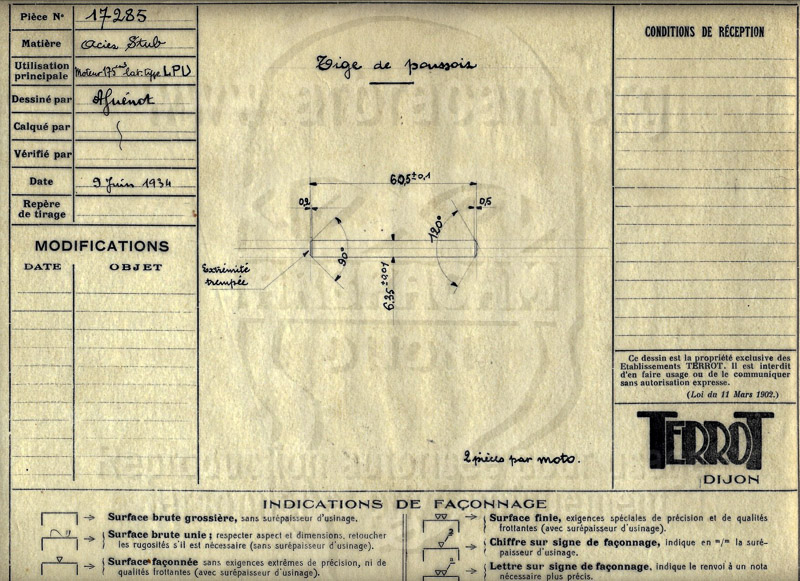 Pièce N° 17285
Matière Acier Stub
Utilisation principale Moteur 175 cm3 lat. type LPU
Dessiné par AGuénot
Calqué par
Vérifié par
Date 9 Juin 1934
Repère de tirage
MODIFICATIONS
DATE OBJET
Tige de poussoir
60,5 ±0,1
0,2
0,5
90°
120°
6.35 ±0,01
Extrémité
trempée
2 pièces par moto.
CONDITIONS DE RÉCEPTION
Ce dessin est la propriété exclusive des
Etablissements TERROT. Il est interdit
d'en faire usage ou de le communiquer
sans autorisation expresse.
(Loi du 11 Mars 1902.)
TERROT
DIJON
INDICATIONS DE FAÇONNAGE
Surface brute grossière, sans surépaisseur d'usinage.
Surface brute unie; respecter aspect et dimensions, retoucher
les rugosités s'il est nécessaire (sans surépaisseur d'usinage).
Surface façonnée sans exigences extrêmes de précision, ni de
qualités frottantes (avec surépaisseur d'usinage).
Surface finie, exigences spéciales de précision et de qualités
frottantes (avec surépaisseur d'usinage).
3
Chiffre sur signe de façonnage, indique en m/m la surépaisseur
d'usinage.
Lettre sur signe de façonnage, indique le renvoi à un nota
nécessaire plus précis.